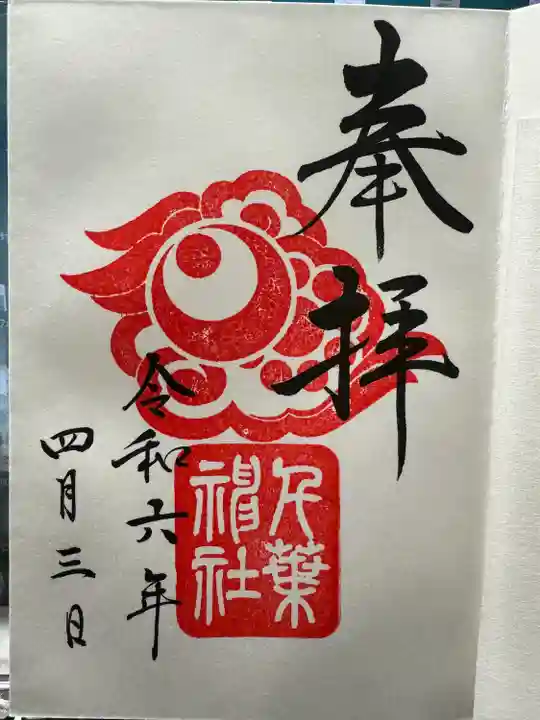 奉拝
令和六年
四月三日
千葉
神社